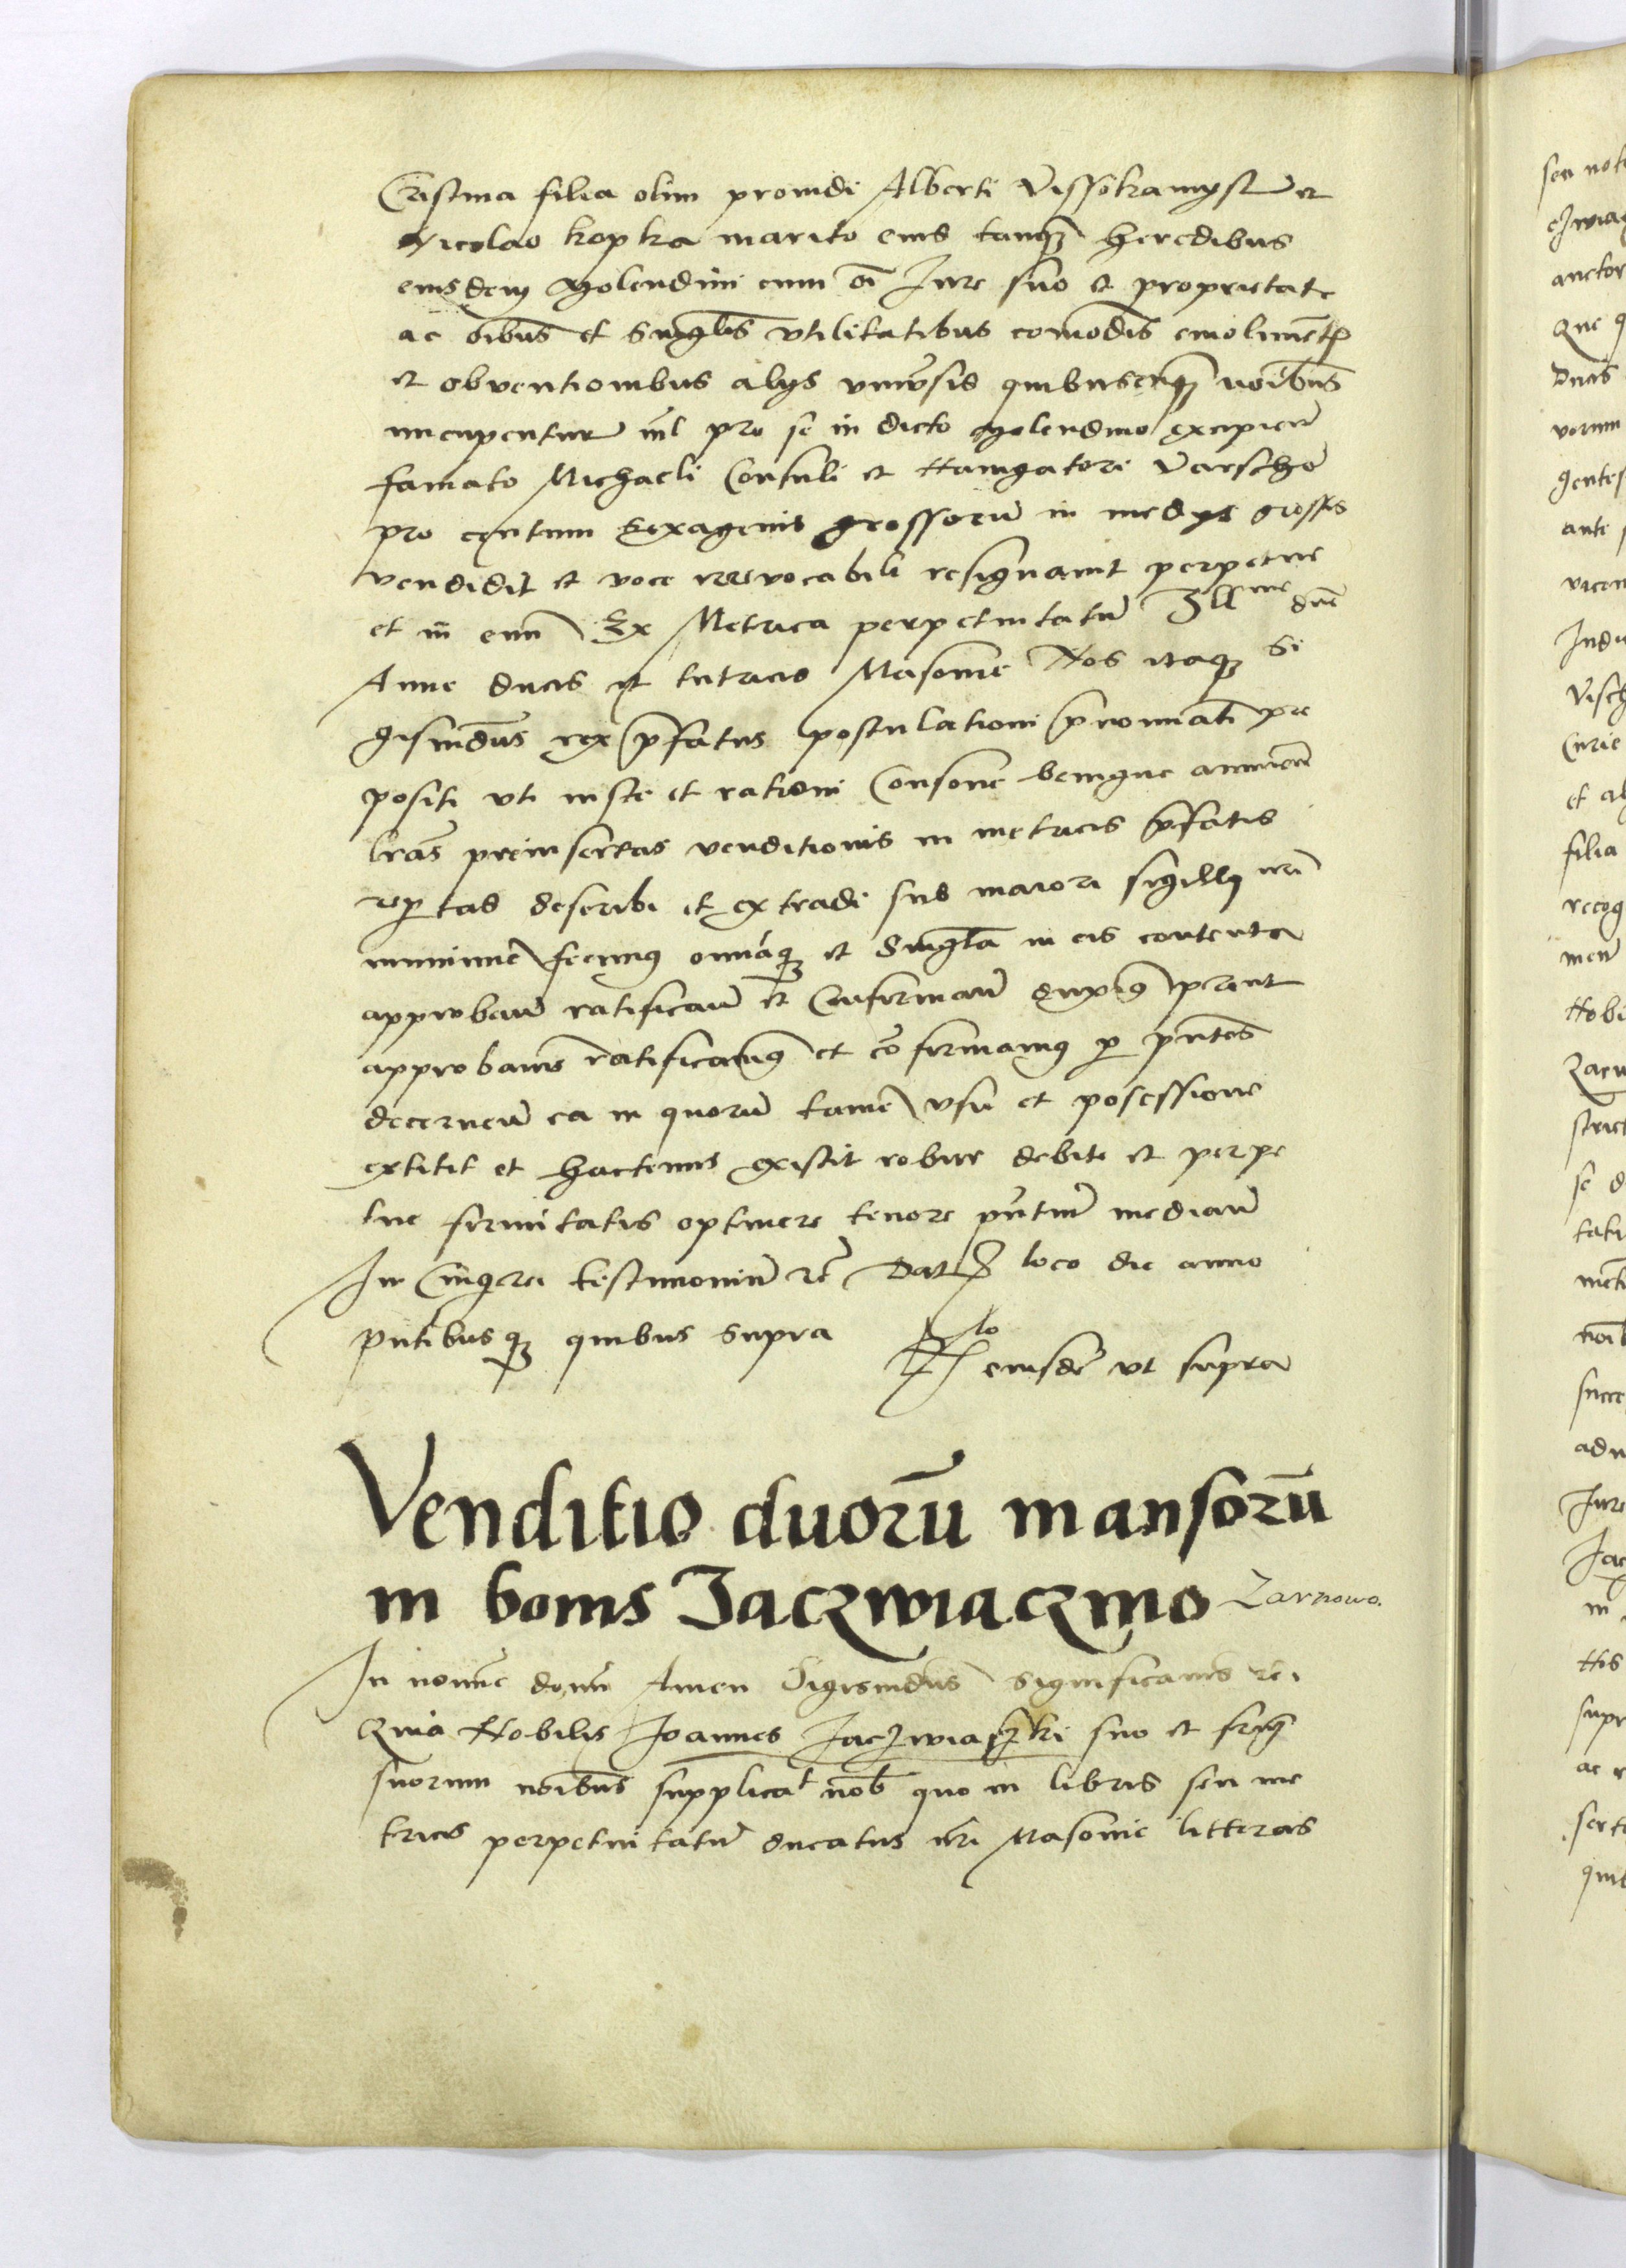 Cristina filia olim prouidi Alberti Vissokamyst et
Nicolao kopka marito eius tamq₃ heredibus
eiusdem molendini cum oī Jure suo et proprietate
ac oībus et singlis vtilitatibus comodis emolimēt
et obuentionibus alijs vniūsis quibuscūq₃ noībus
nuncupentur nīl pro se in dicto molendino excipieñ
famato Michaeli Consuli et Nauigatori Varschō
pro centum Sexagenis grossorū in medijs grossis
vendidit et voce irreuocabili resignauit perpetue
et in euū Ex Metrica perpetuitatū Ill me dnē
Anne ducis et tutricis Masouie Nos itaq₃ Si
gismūdus rex p̄fatus postulationi p̄nominati pre
positi vti iuste et rationi Consone benigne annueñ
lrās preinsertas venditionis in metricis p̄fatis
reptas describi et extradi sub maiori sigillo nrī
munimine fecimus omīaq₃ et Singula in eis contenta
approbañ ratificañ et Confirmañ duximus prout
approbamus ratificamus et cōfirmamus p pn̄tes
decerneñ ea in quorū tamē vsu et posessione
extitit et hactenus existit robur debite et perpe
tue firmitatis optinere tenore pn̄tiū mediañ
In Cuius rei testimoniū rē Dat loco die anno
pn̄tibusq₃ quibus supra
Rlo eiusdē vt supra
Venditio duorū mansorū
in bonis Jaczwiaczino Zarnowo.
In nomīe domī Amen Sigismūdus significamus rē
Quia Nobilis Joannes Jaczwiaszki suo et frūm
suorum noībus supplicat nob quo in libris seu me
tricis perpetuitatū ducatus nrī Masouie litteras